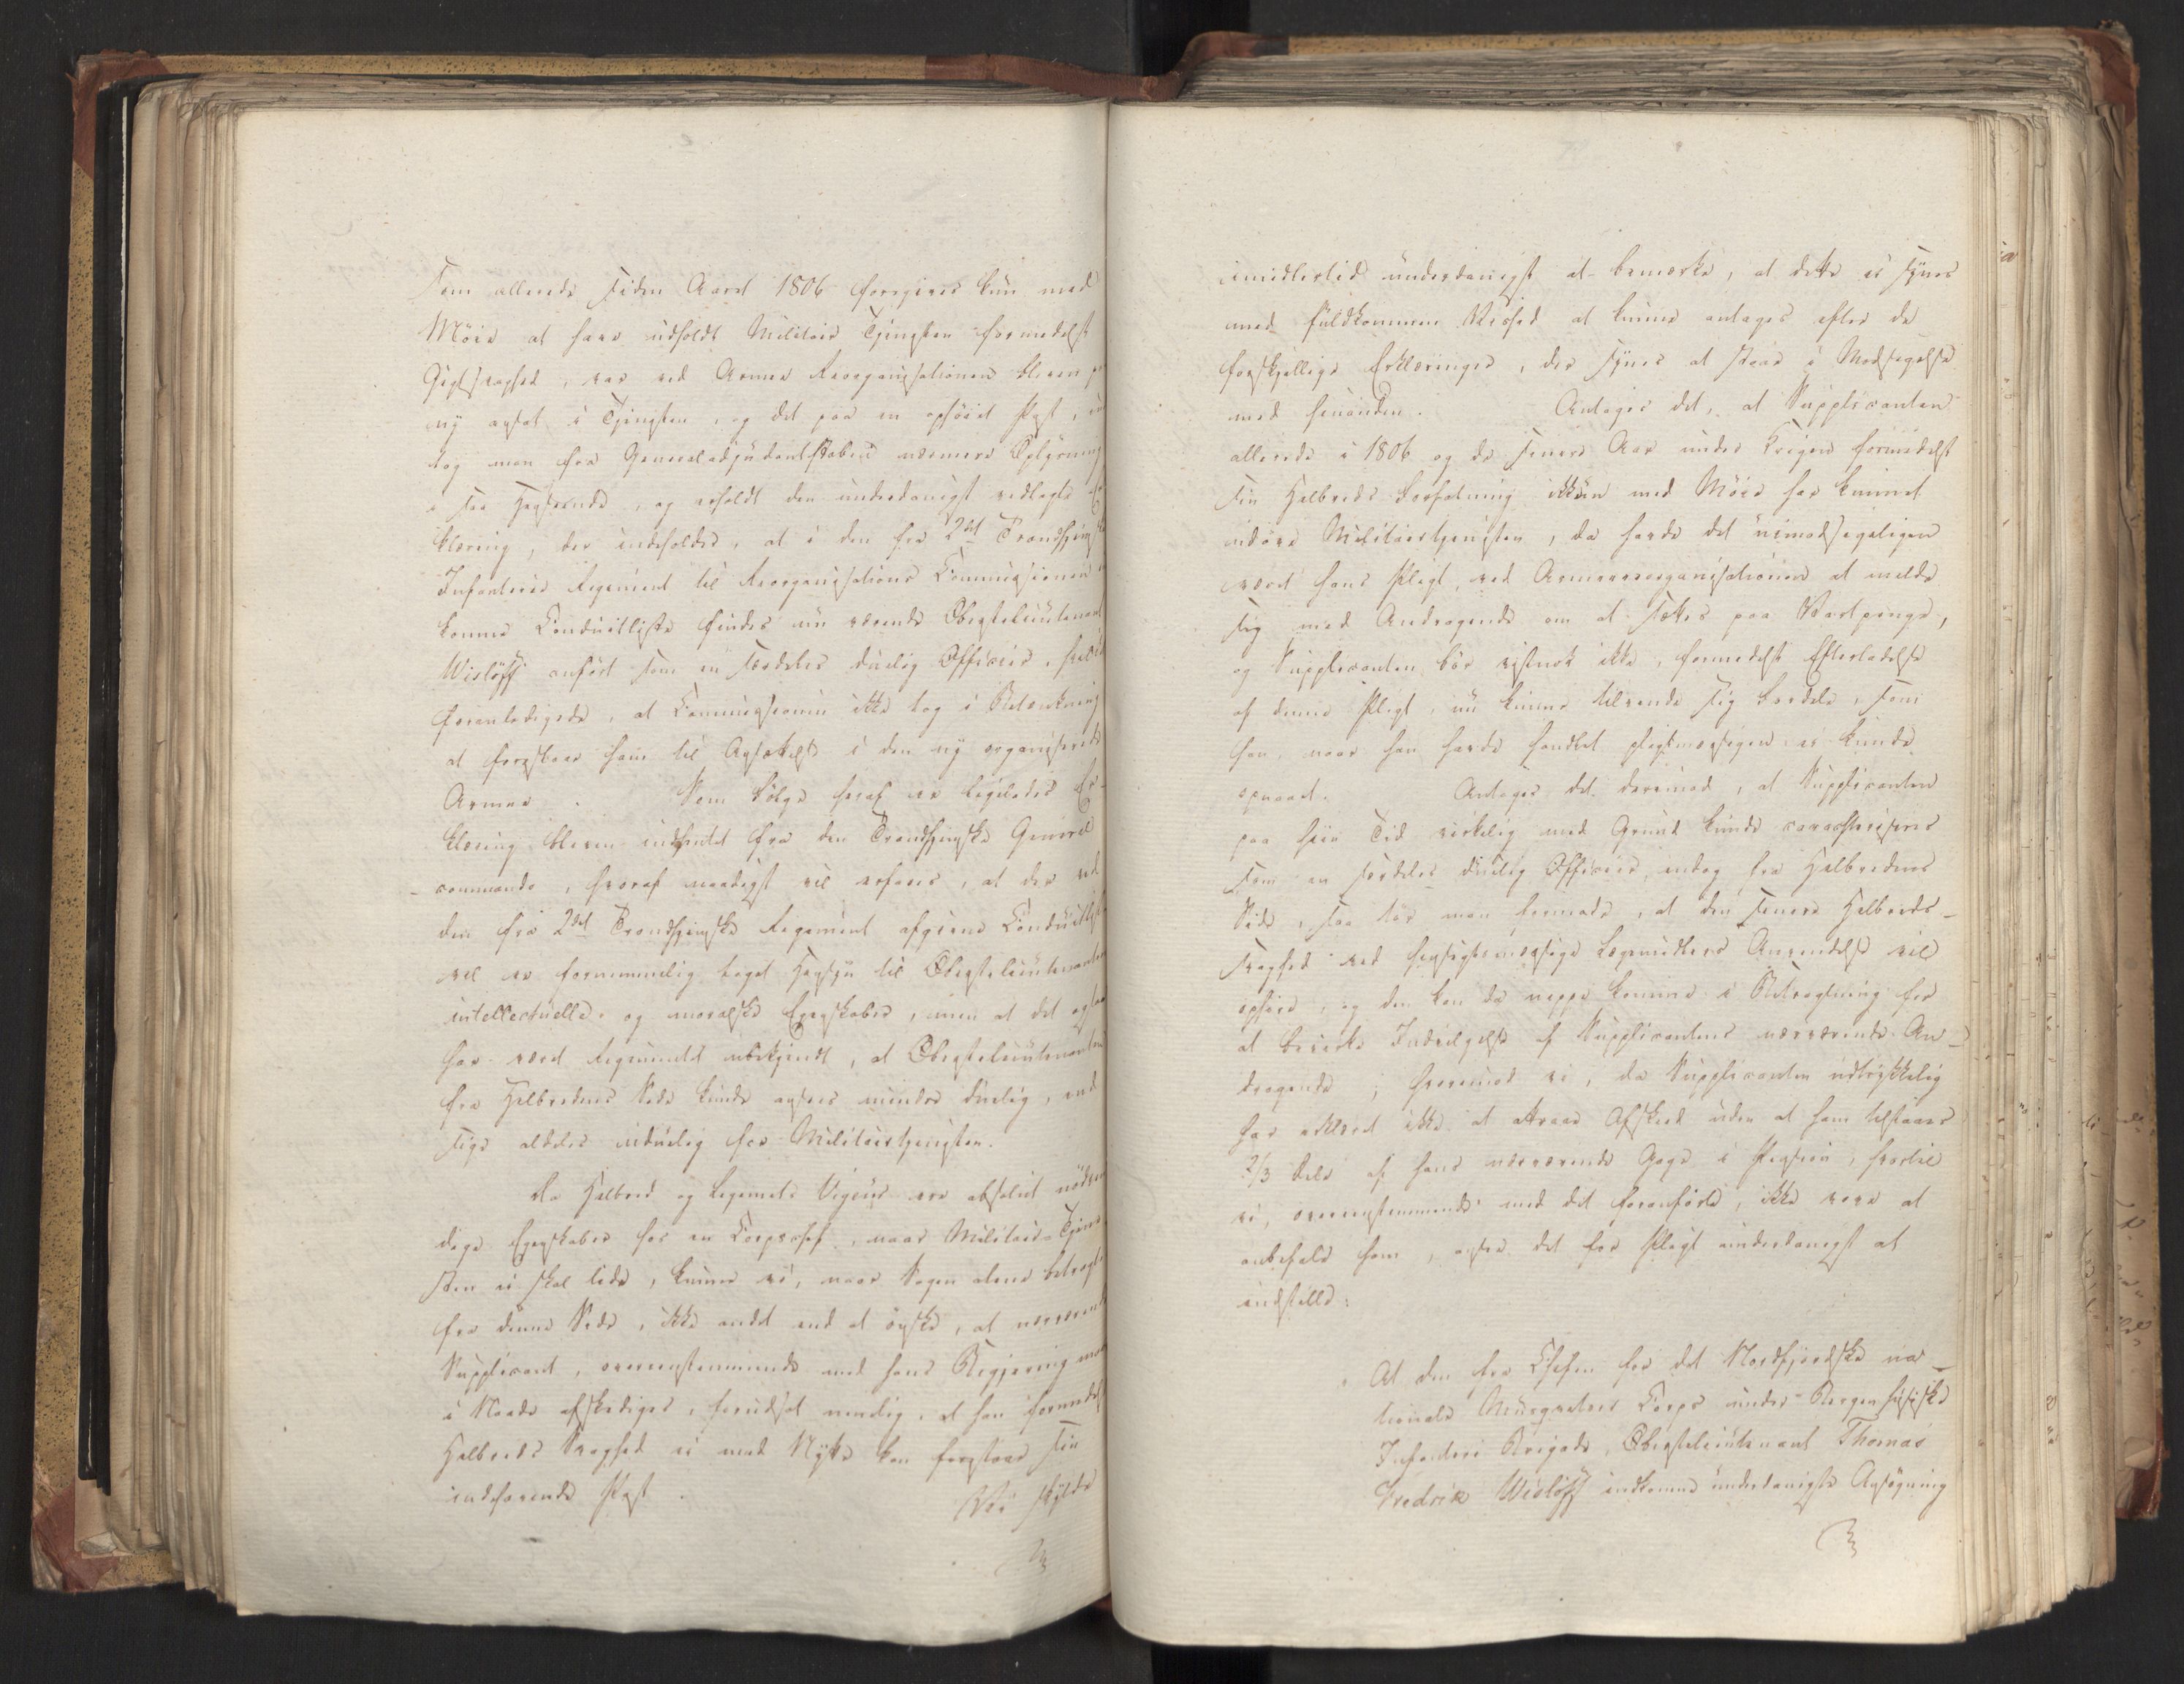 som allerede siden Aaret 1806 foregives kun med
Möie at have udholdt Militair Tjenesten formedelst
Gigtsvaghed, var ved Armee Reorganisationen bleven
ny ansat i Tjenesten, og det paa en ophöiet Post,
tog man fra Generaladjudantstaben nærmere Oplysning
i saa Henseende, og erholdt den underdanigst vedlagte
klæring, der indeholder, at i den fra 2det Trondhjemske
Infanterie Regiment til Reorganisations Commissionen
komne Conduitliste findes nu værende Oberstlieutenant
Wislöff anfört som en særdeles duelig Officier, hvilket
foranledigede, at Commissionen ikke tog i Betænkning
at foreslaae ham til Ansættelse i den ny organiserede
Armee. Som Fölge heraf er ligeledes Er-
klæring bleven indhentet fra den Trondhjemske General
commando, hvoraf naadigst vil erfares, at der ved
den fra 2det Trondhjemske Regiment afgivne Conduitliste
vel er fornemmelig taget Hensyn til Oberstlieutenantens
intellectuelle og moralske Egenskaber, men at det ogsaa
har været Regimentet ubekjendt, at Oberstlieutenanten
fra Helbredens Side kunde ansees mindre duelig, end
sige aldeles uduelig for Militairtjenesten.
Da Helbred og Legemets Vigeur ere absolut nödven
dige Egenskaber for en Corpschef, naar Militair-Tjene
sten ei skal lide, kunne vi, naar Sagen alene betragtes
fra denne Side, ikke andet end at önske, at nærværende
Supplicant, overensstemmende med hans Begjering
i Naade afskediges, forudsat nemlig, at han formedelst
Helbreds Svaghed ei med Nytte kan forestaae sin
indehavende Post. Vi skylde
imidlertid underdanigst at bemærke, at dette ei synes
med fuldkommen Vished at kunne antages efter de
forskjellige Erklæringer, der synes at staae i Modsigelse
med hinanden. Antages det, at Supplicanten
allerede i 1806 og de senere Aar under Krigen formedelst
sin Helbreds Forfatning ikkun med Möie har kunnet
udöve Militairtjenesten, da havde det uimodsigeligen
været hans Pligt, ved Armeereorganisationen at melde
sig med Andragende om at sættes paa Vartpenge,
og Supplicanten bör vistnok ikke, formedelst Efterladelse
af denne Pligt, nu kunne tilvende sig Fordele, som
han, naar han havde handlet pligtmæssigen ei kunde
opnaaet. Antages det derimod, at Supplicanten
paa hiin Tid virkelig med Grund kunde caracteriseres
som en særdeles duelig Officier, endog fra Helbredens
Side, saa tör man formode, at den senere Helbreds-
svaghed ved hensigtsmæssige Lægemidlers Anvendelse vil
ophöre, og den kan da neppe komme i Betragtning for
at bevirke Indvilgelse af Supplicantens nærværende An-
dragende; hvorimod vi, da Supplicanten udtrykkelig
har erklæret ikke at attraae Afsked uden at ham tilstaaes
2/3 Dele af hans nærværende Gage i Pension, hvortil
vi, overensstemmende med det foranförte, ikke vove at
anbefale ham, ansee det for Pligt underdanigst at
indstille:
At den fra Chefen for det Nordfjordske na-
tionale Musqueteer Corps under Bergenhusiske
Infanteri Brigade, Oberstlieutenant Thomas
Fredrik Wislöff indkomne underdanigste Ansögning